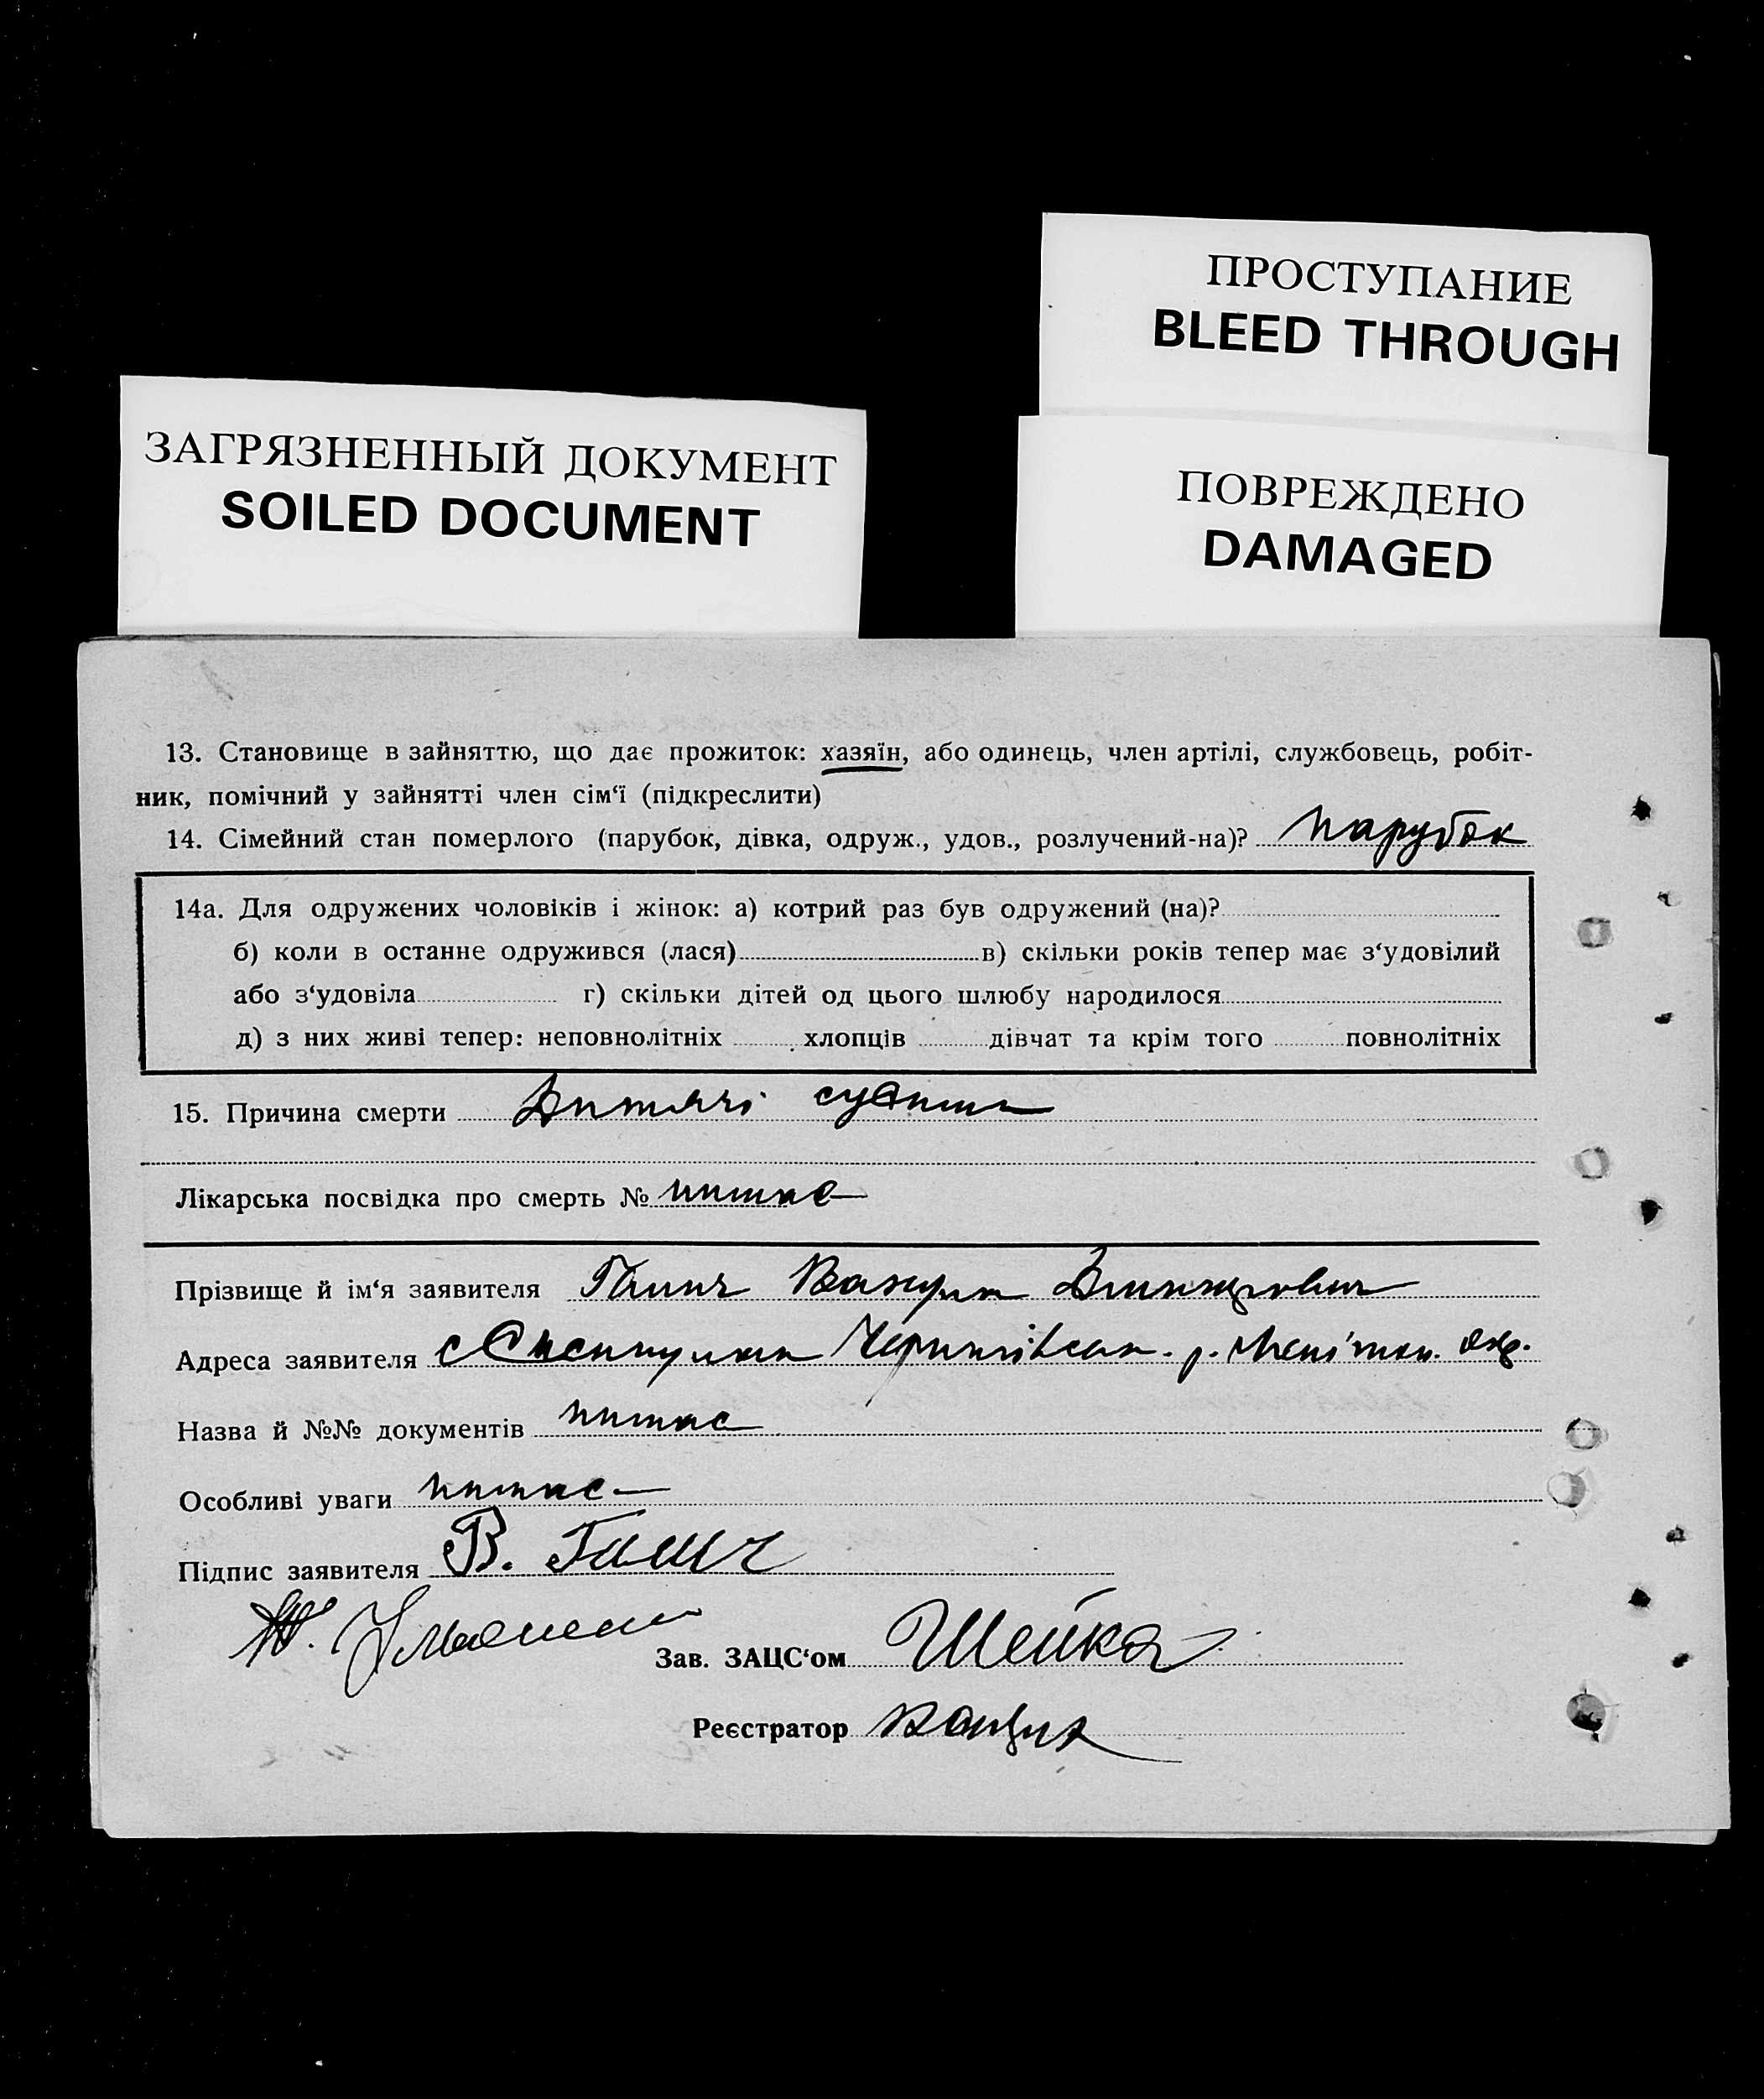 ПРОСТУПАНИЕ
BLEED THROUGH
ЗАГРЯЗНЕННЫЙ ДОКУМЕНТ
SOILED DOCUMENT
ПОВРЕЖДЕНО
DAMAGED
13. Становище в зайняттю, що дає прожиток: хазяїн, або одинець, член артілі, службовець, робіт-
ник, помічний у зайнятті член сім‘ї (підкреслити)
14. Сімейний стан померлого (парубок, дівка, одруж., удов., розлучений-на)? парубок
14а. Для одружених чоловіків і жінок: а) котрий раз був одружений (на)?
б) коли в останне одружився (лася) в) скільки років тепер має з‘удовілий
або з‘удовіла г) скільки дітей од цього шлюбу народилося
д) з них живі тепер: неповнолітніх хлопців дівчат та крім того повнолітніх
15. Причина смерти Дитячі
Лікарська посвідка про смерть № немає
Прізвище й ім‘я заявителя
Адреса заявителя с р. окр.
Назва й №№ документів немає
Особливі уваги немає
Підпис заявителя В.
Зав. ЗАЦС‘ом Шейка
Реєстратор